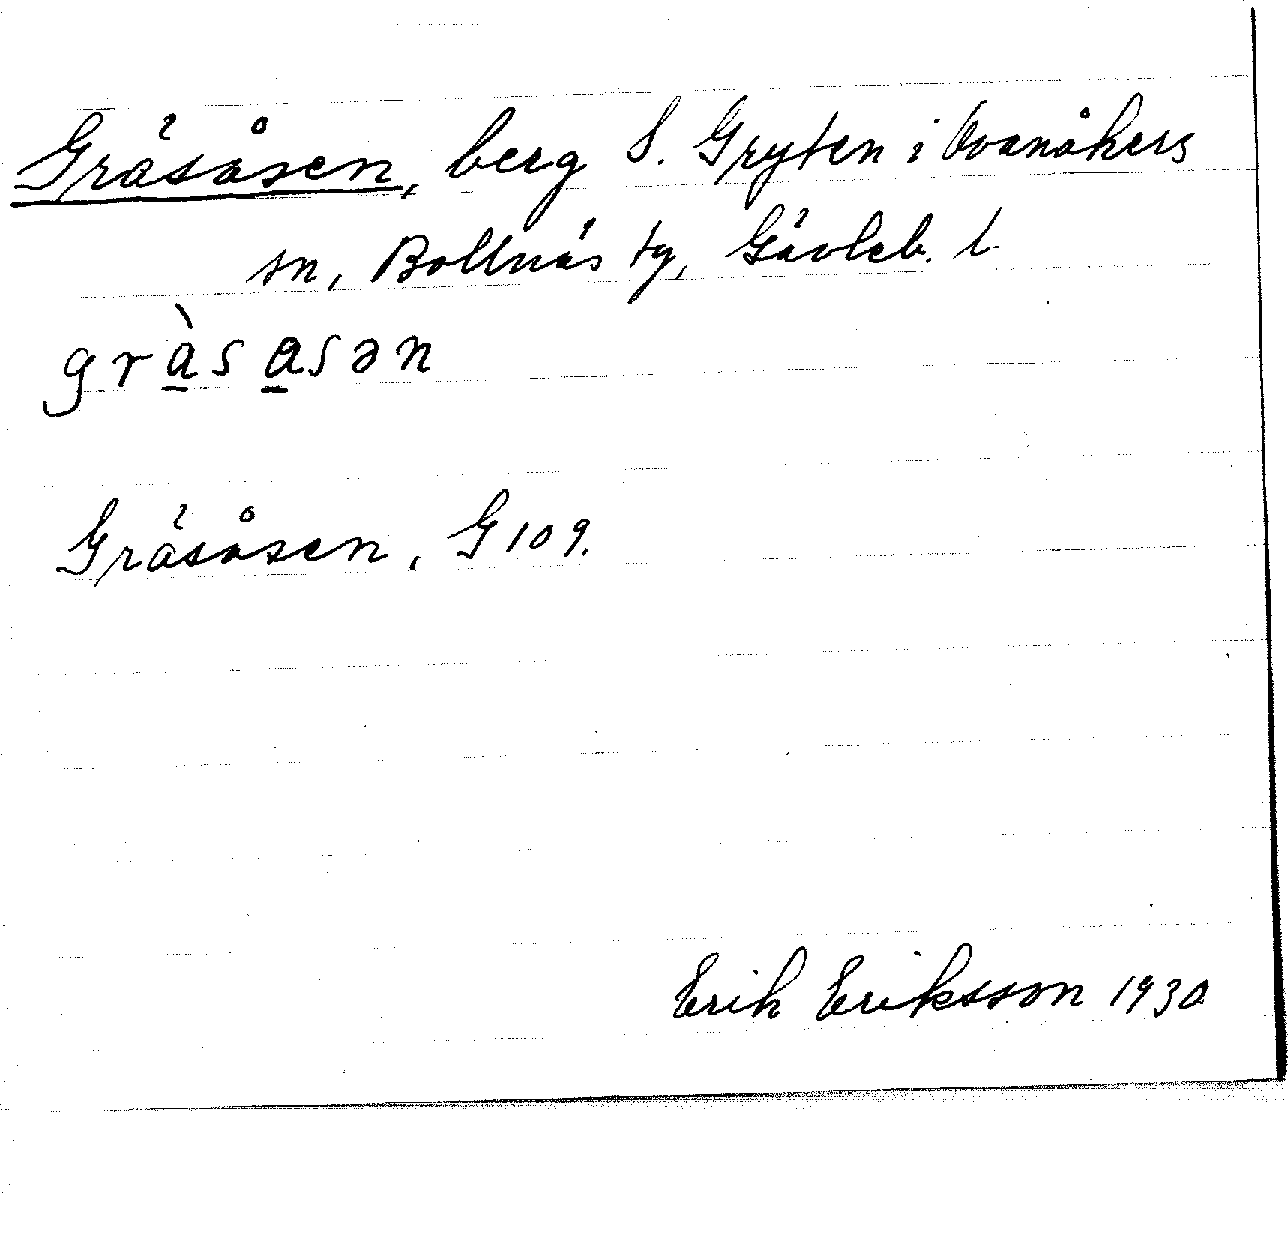 Gräsåsen, berg S. Gryten i Ovanåkers
sn, Bollnäs tg, Gävleb. l.
gràsasən
Gräsåsen, G 109.
Erik Eriksson 1930